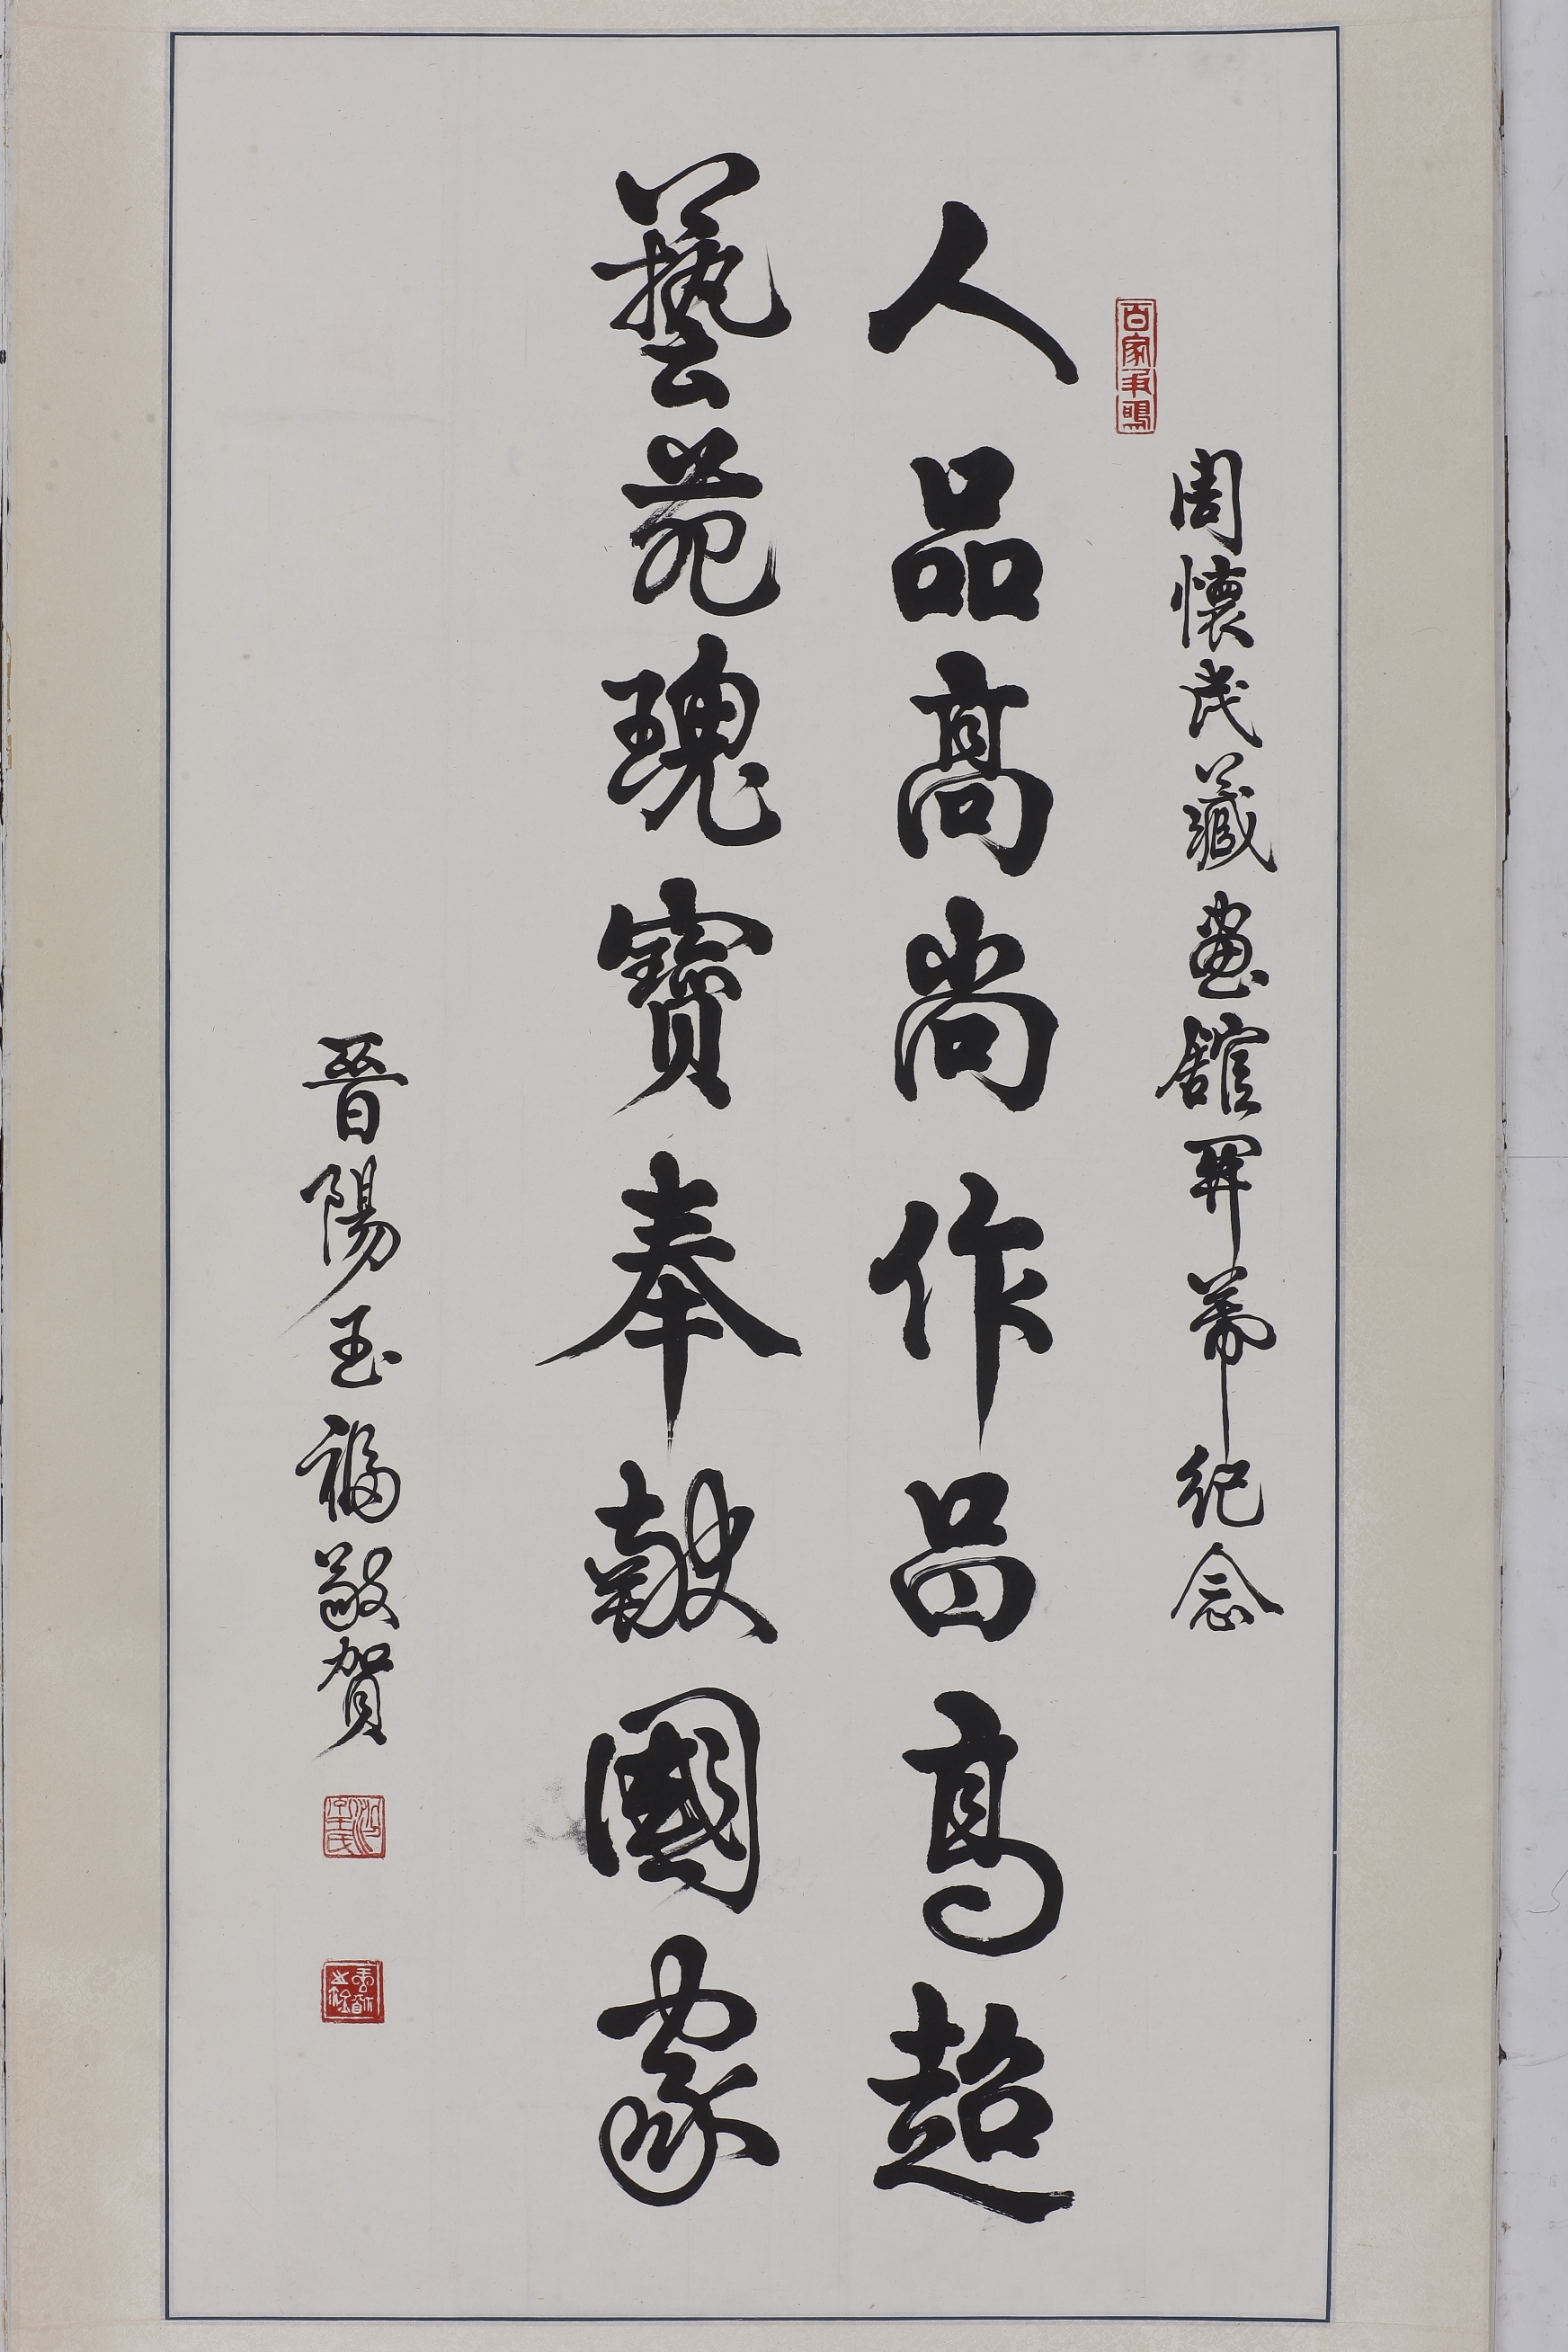 百家爭鳴
周懷民藏畫館開幕紀念
人品高尚作品高超
藝苑瑰寶奉獻國家
晉陽玉福敬賀